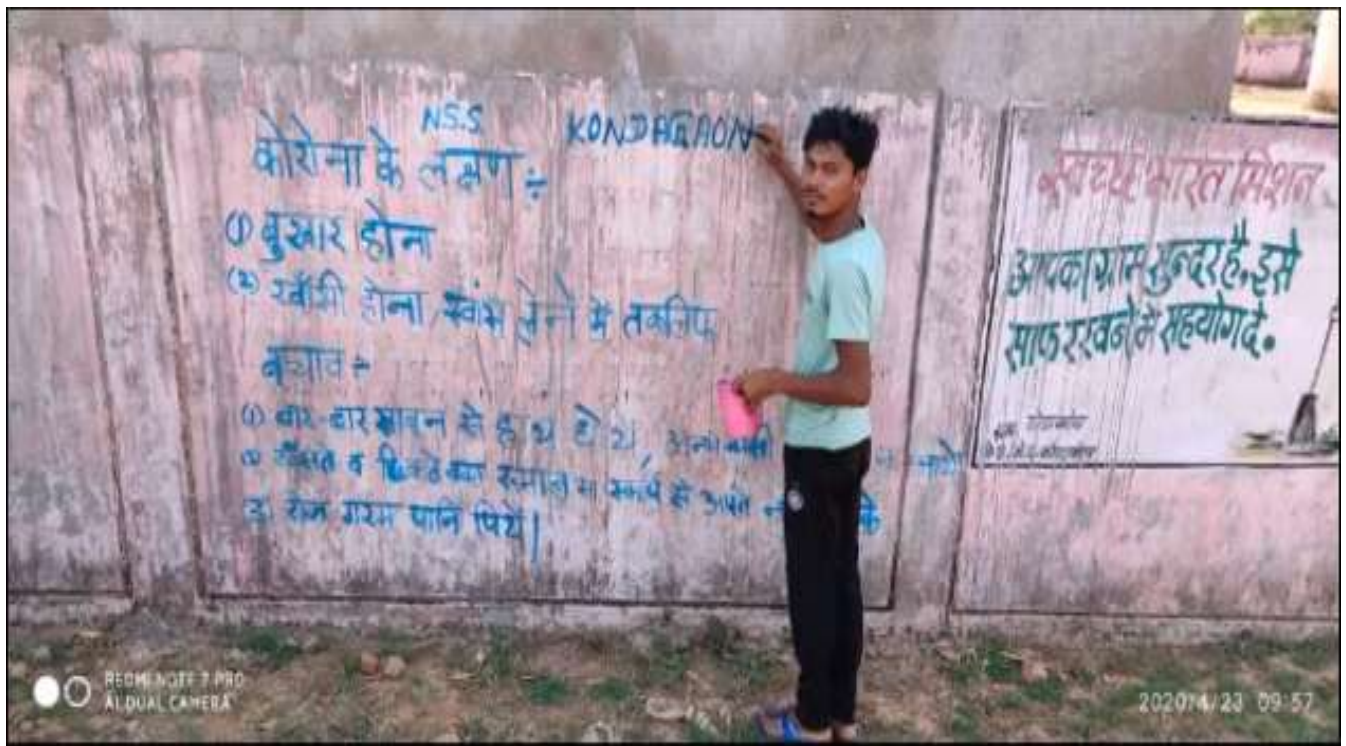 N.S.S. KONDAGAON
कोरोना के लक्षण ÷
(1) बुखार होना
(2) खाँसी होना, स्वांस लेने में तकलिफ
बचाव ÷
(1) बार-बार साबुन से हाथ धोयें,
व रुमाल से अपने
3. रोज गरम पानि पियें|
स्वच्छ भारत मिशन
आपका ग्राम सुन्दर है, इसे
साफ रखने में सहयोग दें.
REDMI NOTE 7 PRO
AI DUAL CAMERA
2020/4/23 09:57